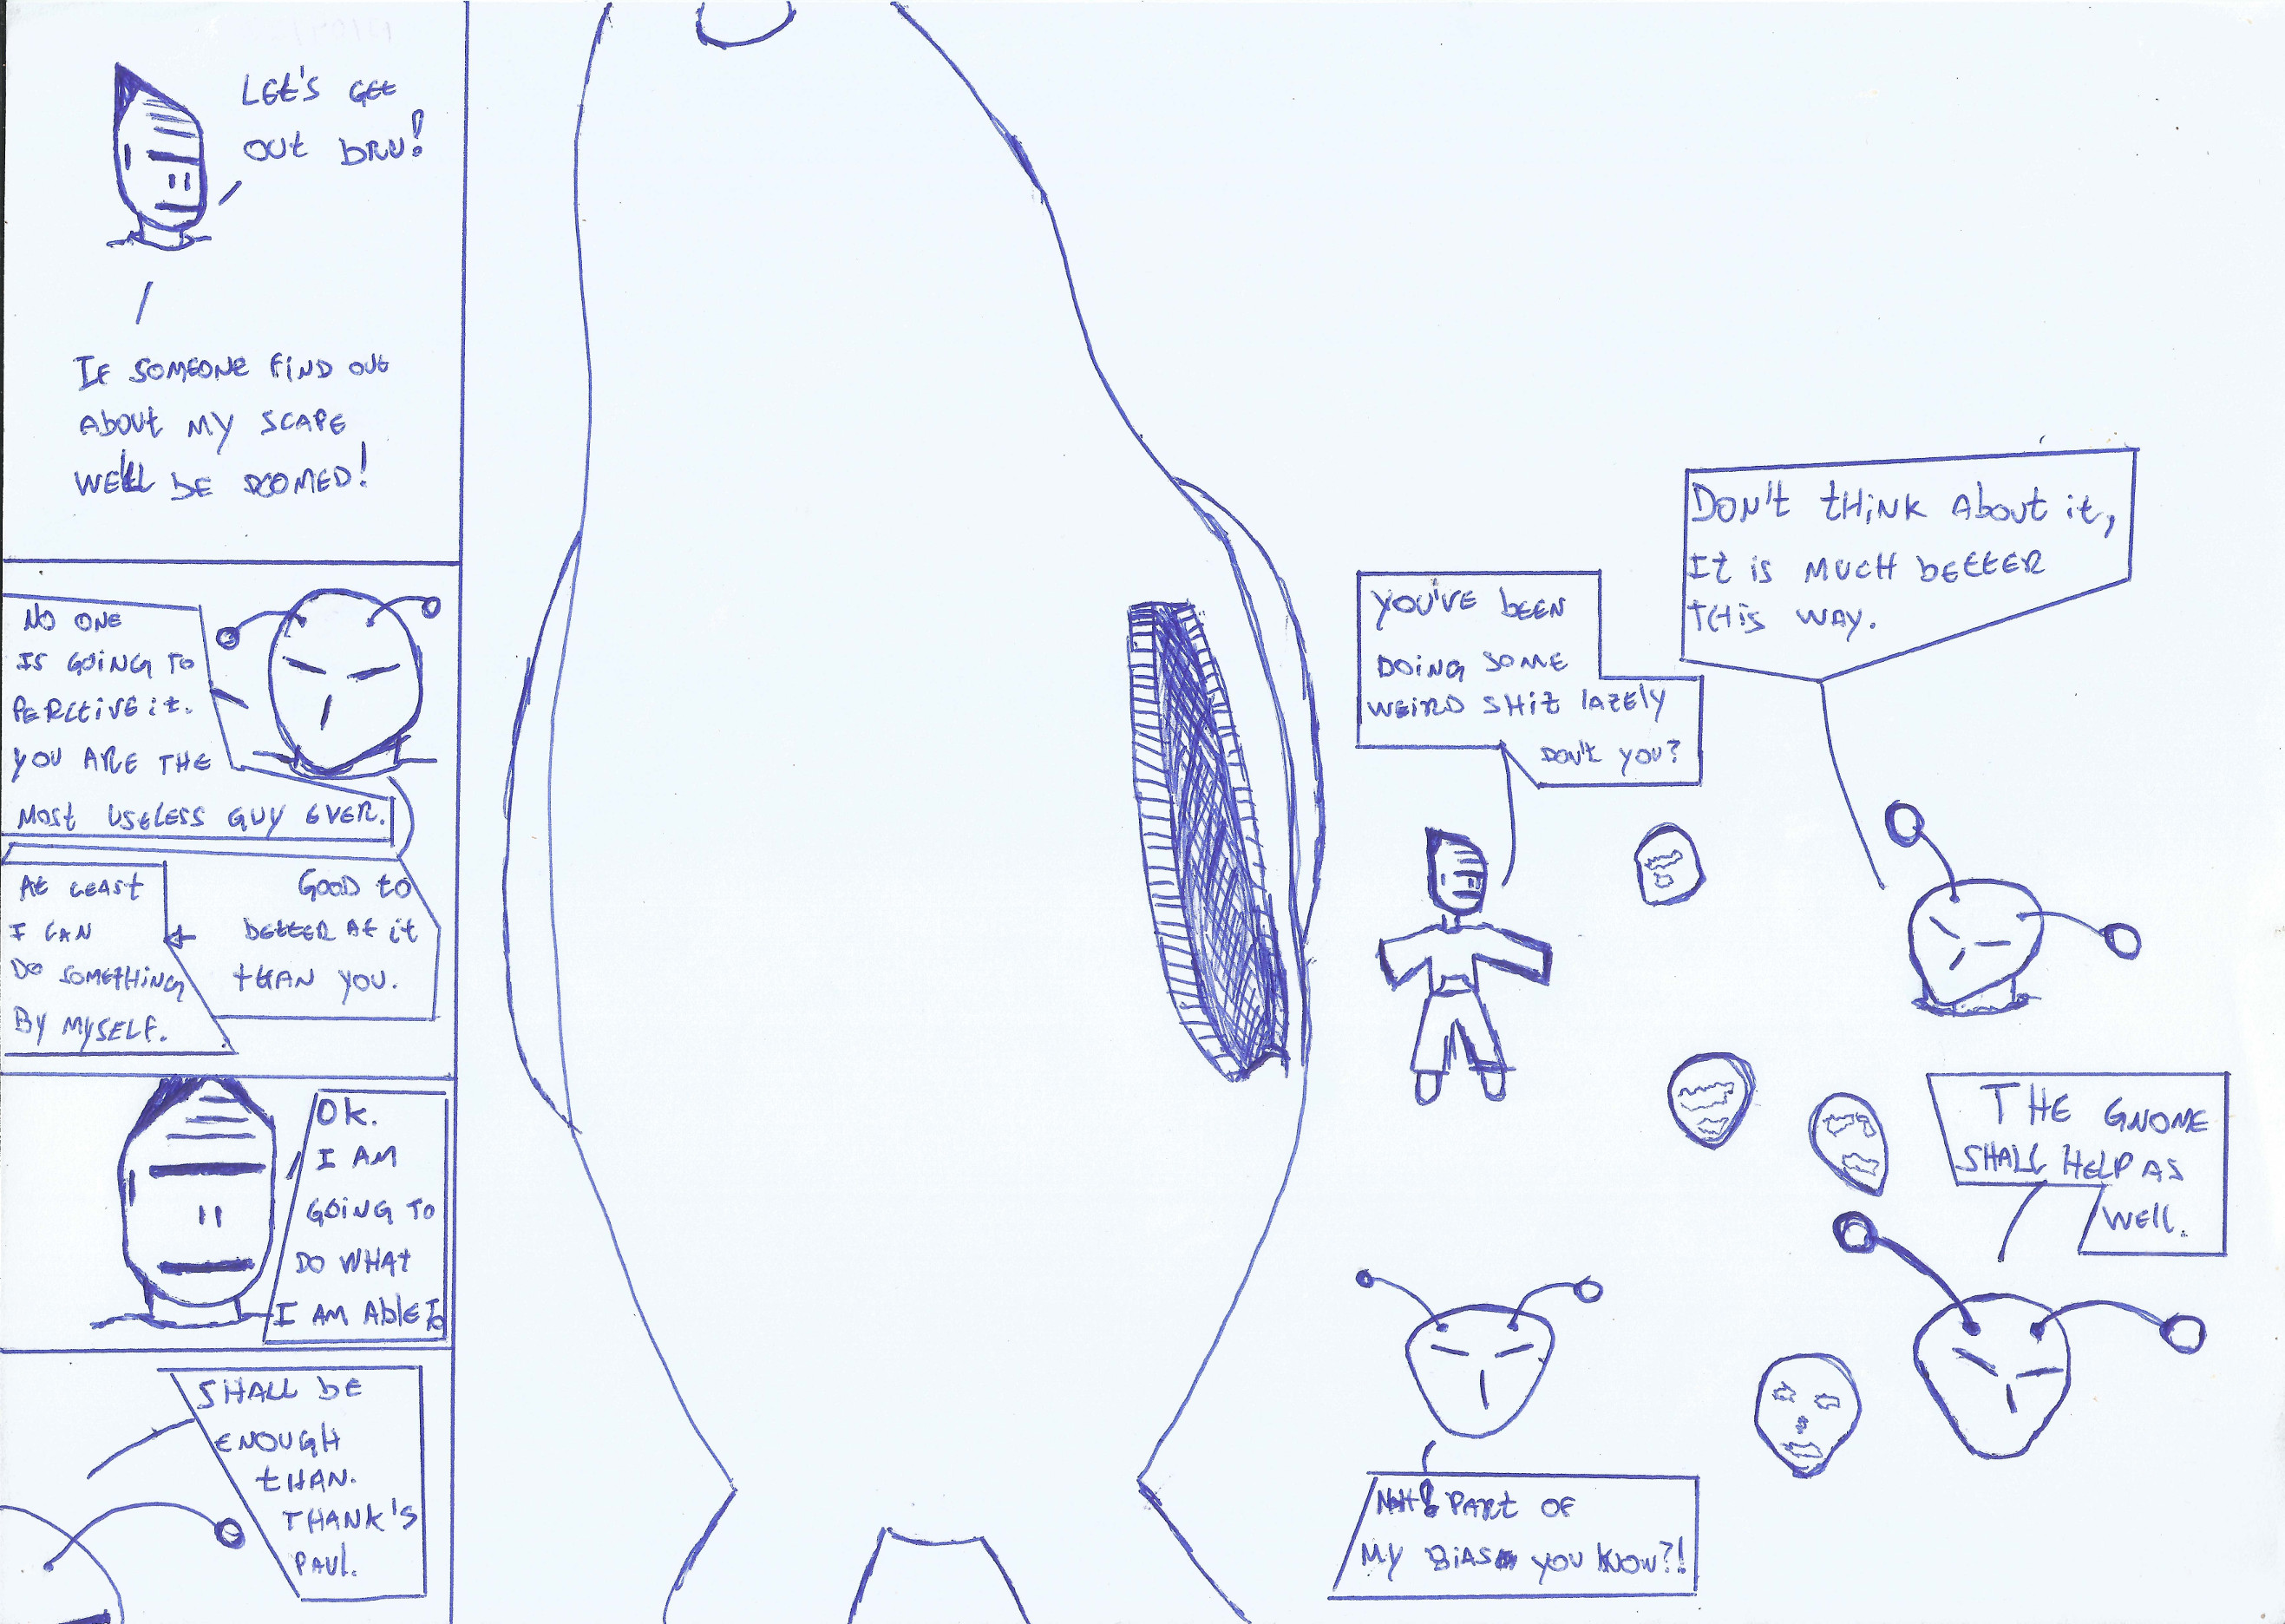 LEt'S GEt
OUt bRU!
IF SOMEONE FIND OUt
AboUt MY SCAPE
WE'LL bE DOOMED!
NO ONE
IS GOING TO
PERCEIVE it.
YOU ARE THE
MOSt USELESS GUY EVER.
GOOD to
bEttER At it
tHAN YOU.
At LEASt
I CAN
DO SOMEtHING
BY MYSELF.
OK.
I AM
GOING TO
DO WHAt
I AM AblE To
SHALL bE
ENOUGH
tHAN.
THANK'S
PAUL.
YOU'VE bEEN
DOING SOME
WEIRD SHit lAtELY
DON't YOU?
DON't tHiNK AboUt it,
It is MUCH bEttER
tHis WAY.
THE GNOME
SHALL HELP AS
WEll.
PARt OF
MY BIAS YOU KNOW?!